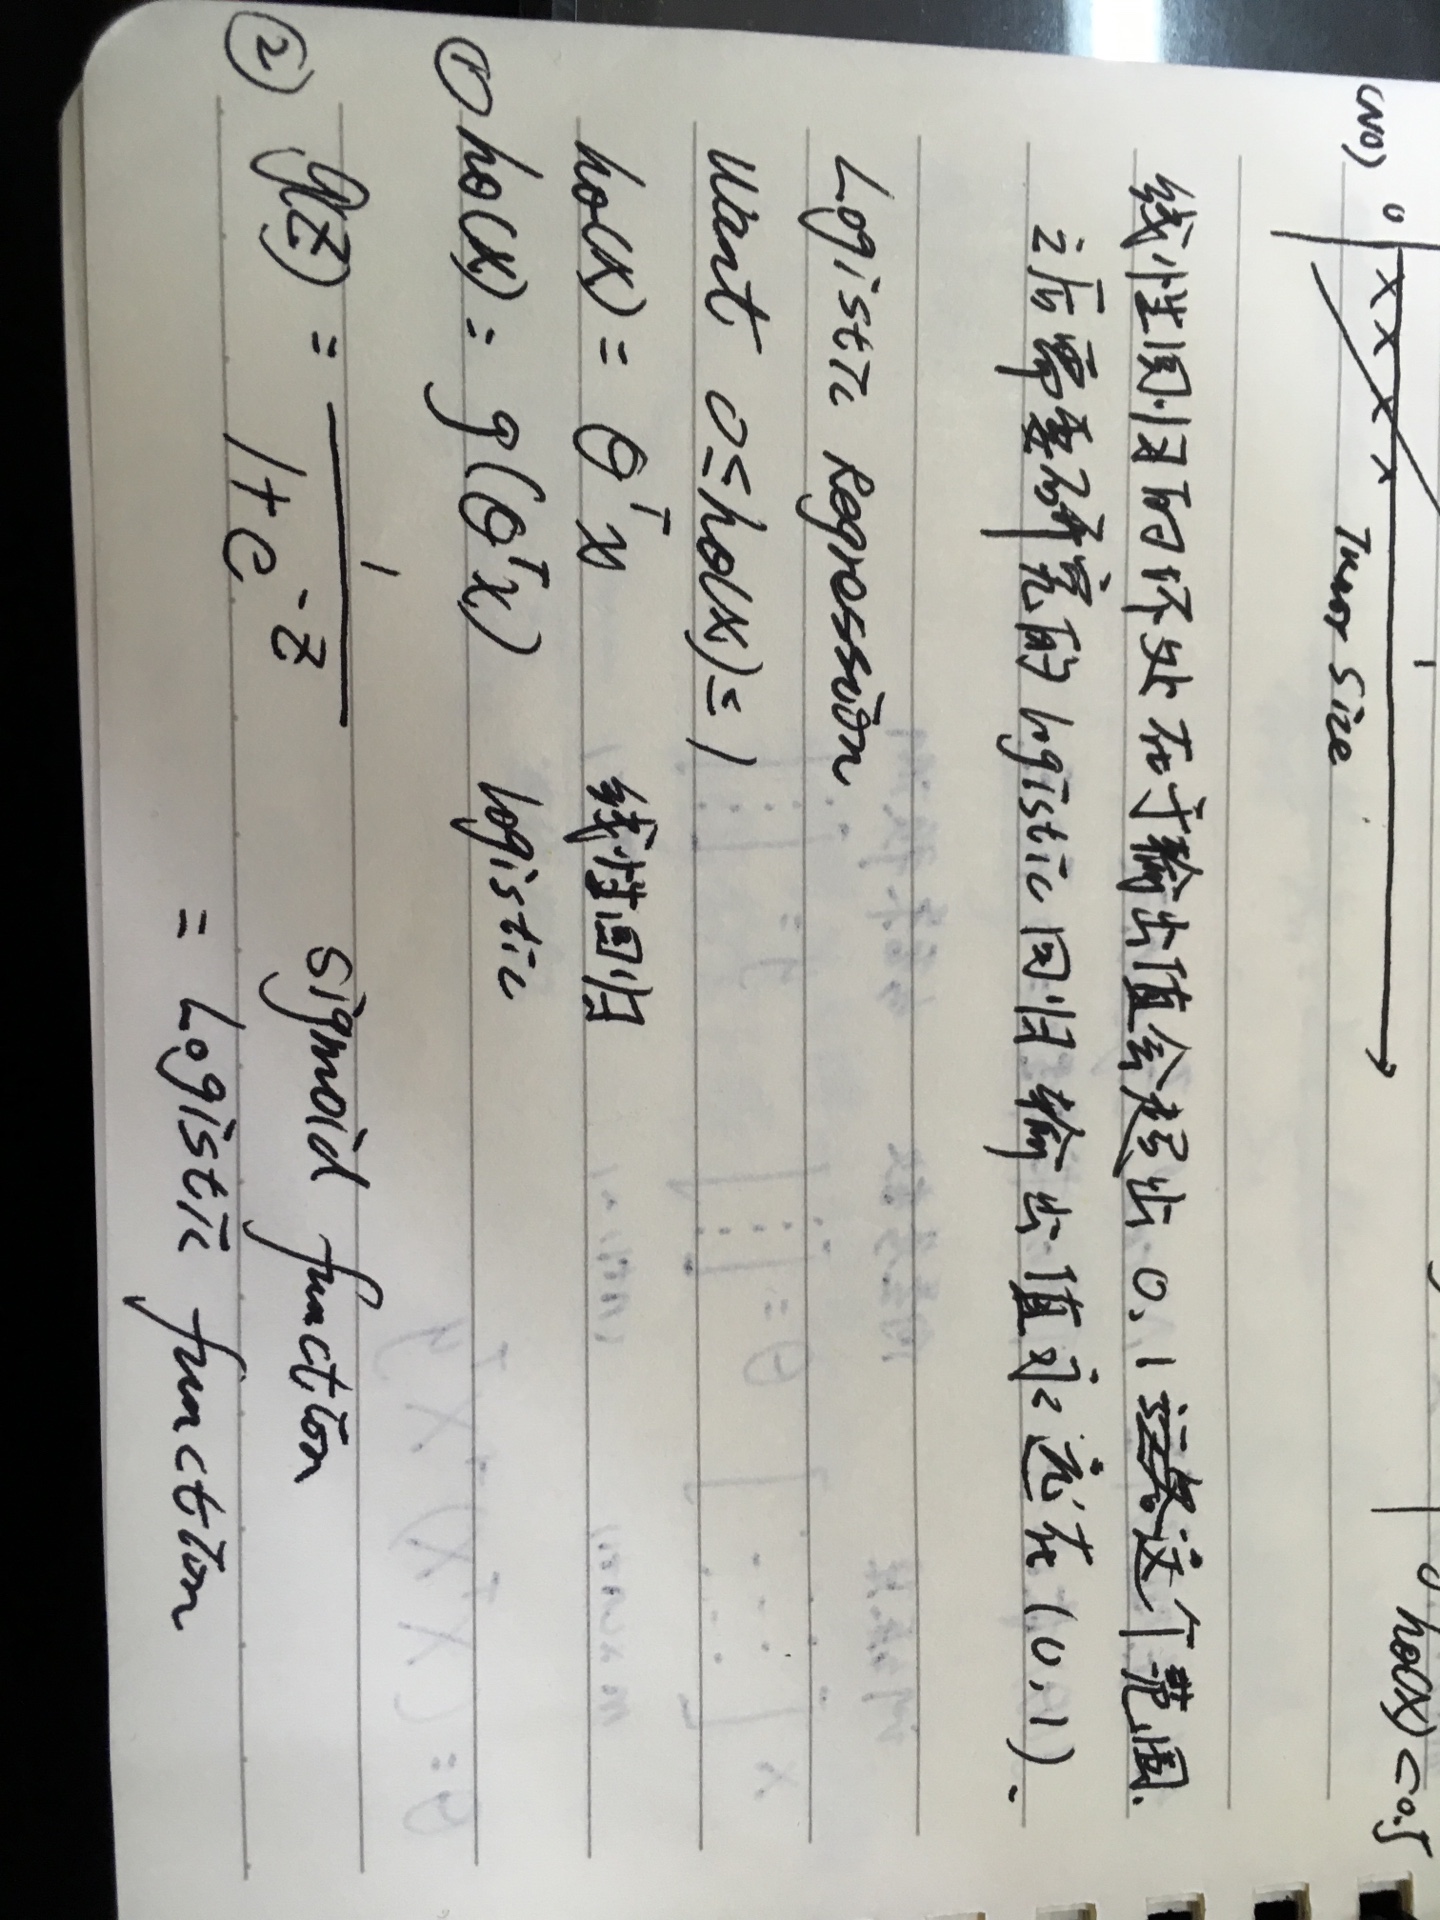 hθ(x) < 0.5
(NO) 0
Tumor Size
线性回归的坏处在于输出值会超出 0,1 这个范围.
之后需要研究的 logistic 回归 输出值永远在 (0,1)、
Logistic Regression
Want 0≤hθ(x)≤1
hθ(x) = θᵀx 线性回归
① hθ(x) = g(θᵀx) logistic
② g(z) = 1 / 1+e^-z sigmoid function
= Logistic function